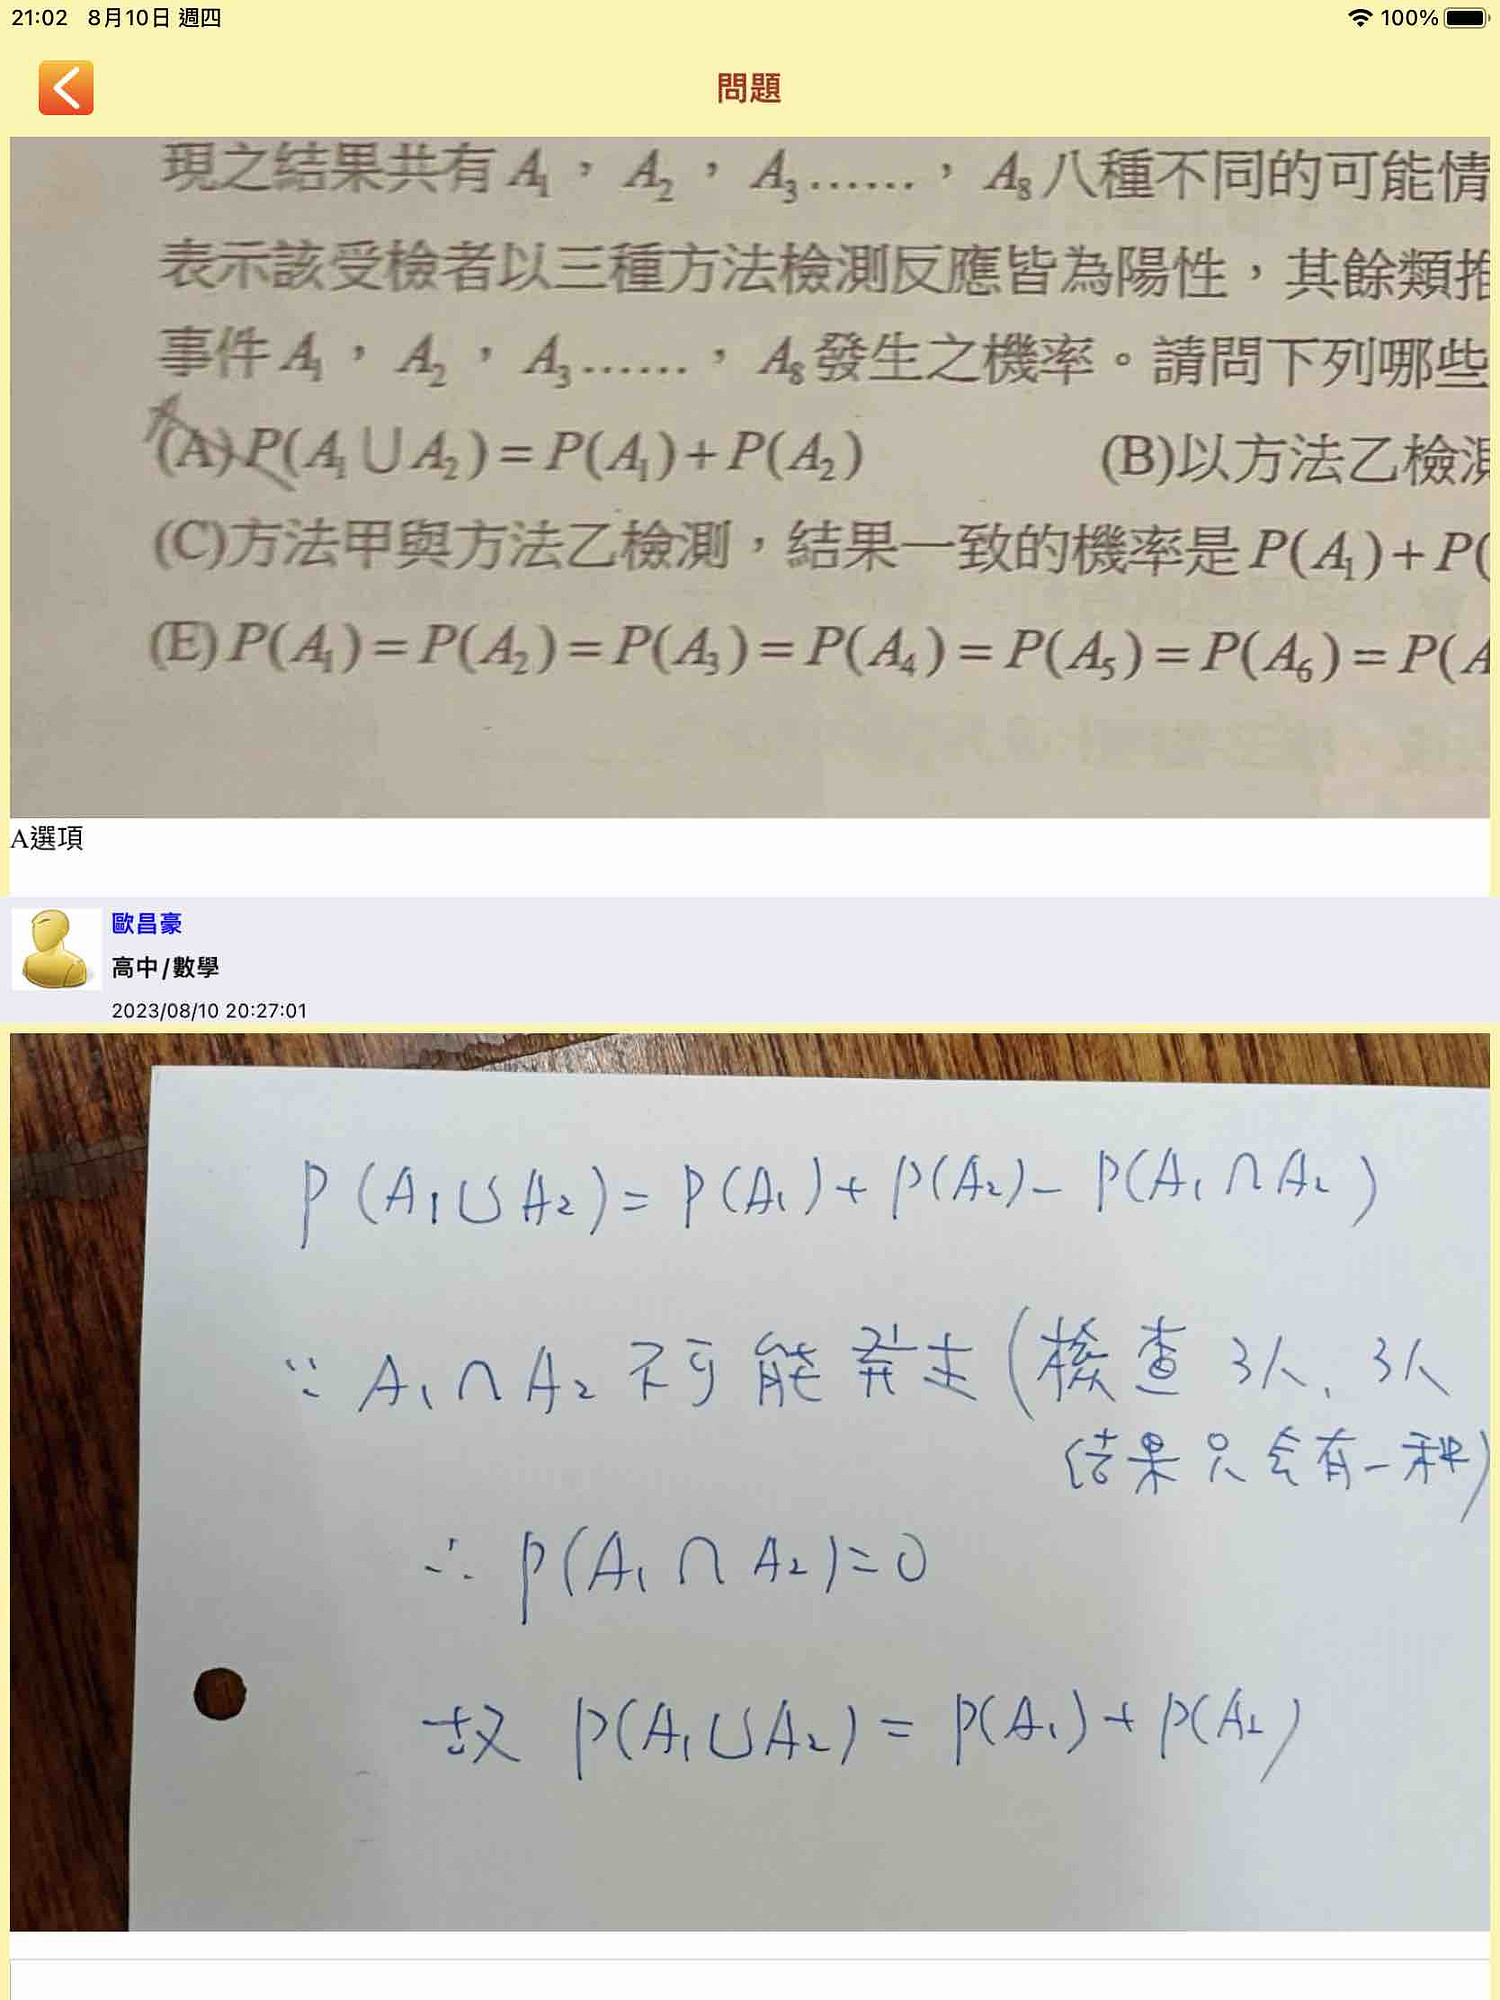 21:02 8月10日 週四
100%
問題
現之結果共有 A₁，A₂，A₃......，A₈八種不同的可能情
表示該受檢者以三種方法檢測反應皆為陽性，其餘類推
事件 A₁，A₂，A₃......，A₈發生之機率。請問下列哪些
(A) P(A₁∪A₂)=P(A₁)+P(A₂) (B)以方法乙檢測
(C)方法甲與方法乙檢測，結果一致的機率是 P(A₁)+P(
(E) P(A₁)=P(A₂)=P(A₃)=P(A₄)=P(A₅)=P(A₆)=P(A
A選項
歐昌豪
高中/數學
2023/08/10 20:27:01
P(A₁∪A₂)=P(A₁)+P(A₂)-P(A₁∩A₂)
∵ A₁∩A₂ 不可能發生(檢查3人、3人
結果只會有一種)
∴ P(A₁∩A₂)=0
故 P(A₁∪A₂)=P(A₁)+P(A₂)